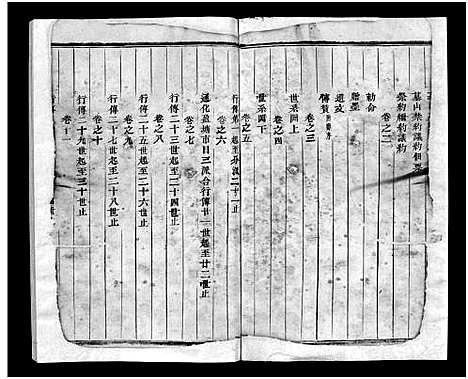 墓山祭約議約佃票
祭約續約議約
卷之二
勅命
贈墨
遺政
傳贊
卷之三
世系圖上
卷之四
世系圖下
卷之五
行傳第一起至
卷之六
通化盈塘市目三派合行傳廿一世起至廿二世止
卷之七
行傳二十三世起至二十四世止
卷之八
行傳二十五世起至二十六世止
卷之九
行傳二十七世起至二十八世止
卷之十
行傳二十九世起至三十世止
卷十